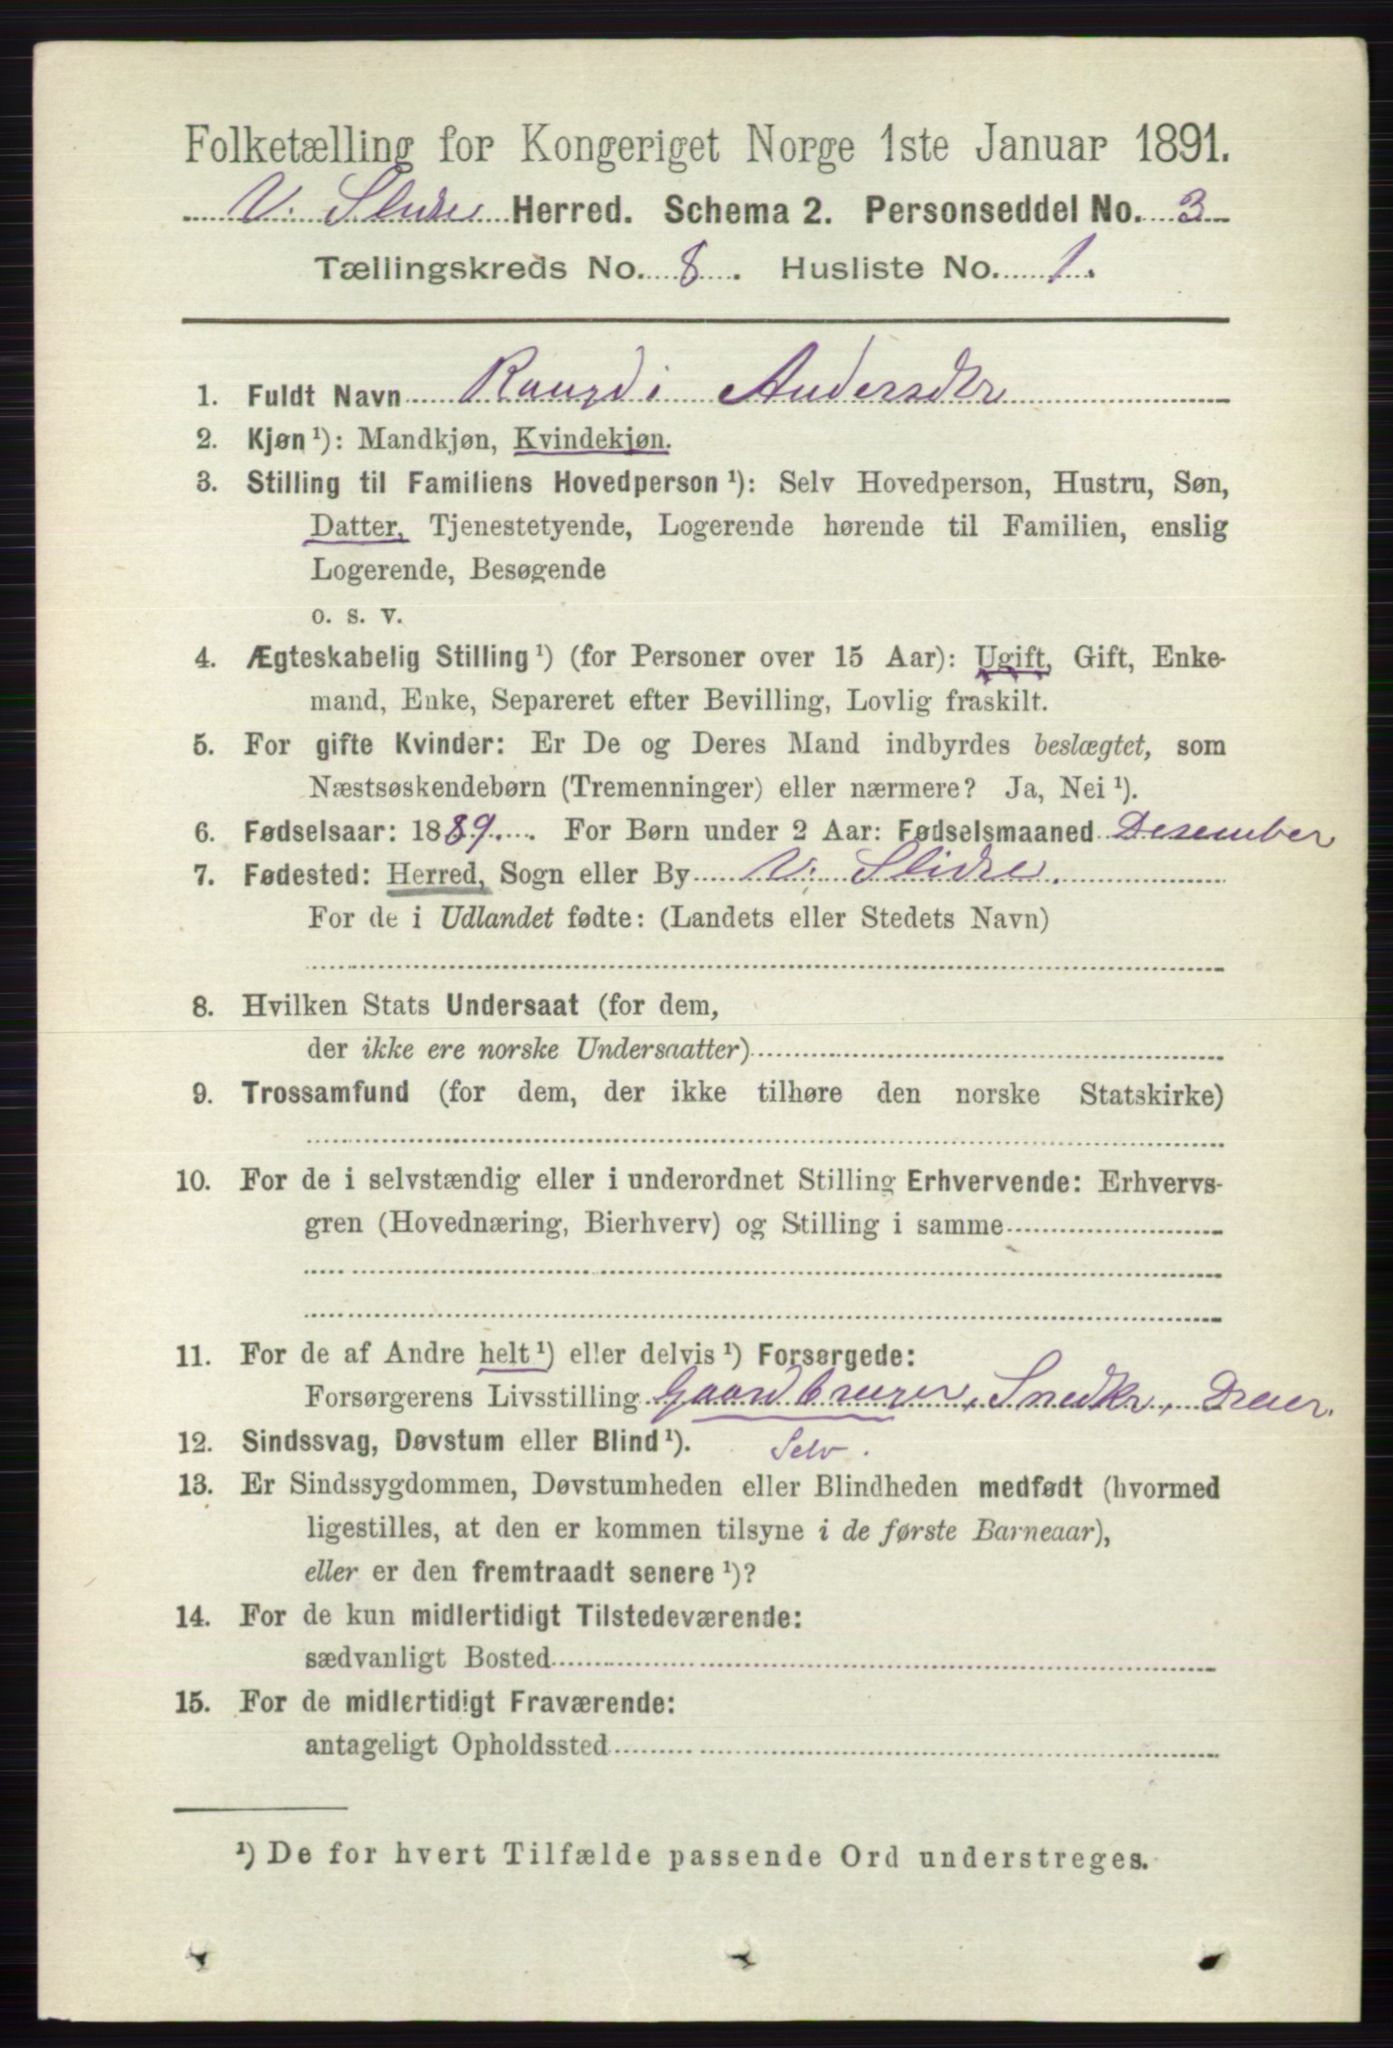 Folketælling for Kongeriget Norge 1ste Januar 1891.
V. Slidre Herred. Schema 2. Personseddel No. 3
Tællingskreds No. 8. Husliste No. 1.
1. Fuldt Navn Rangdi Andersdtr
2. Kjøn ¹): Mandkjøn, Kvindekjøn.
3. Stilling til Familiens Hovedperson ¹): Selv Hovedperson, Hustru, Søn,
Datter, Tjenestetyende, Logerende hørende til Familien, enslig
Logerende, Besøgende
o. s. v.
4. Ægteskabelig Stilling ¹) (for Personer over 15 Aar): Ugift, Gift, Enke-
mand, Enke, Separeret efter Bevilling, Lovlig fraskilt.
5. For gifte Kvinder: Er De og Deres Mand indbyrdes beslægtet, som
Næstsøskendebørn (Tremenninger) eller nærmere? Ja, Nei ¹).
6. Fødselsaar: 1889. For Børn under 2 Aar: Fødselsmaaned Desember
7. Fødested: Herred, Sogn eller By V. Slidre.
For de i Udlandet fødte: (Landets eller Stedets Navn)
8. Hvilken Stats Undersaat (for dem,
der ikke ere norske Undersaatter)
9. Trossamfund (for dem, der ikke tilhøre den norske Statskirke)
10. For de i selvstændig eller i underordnet Stilling Erhvervende: Erhvervs-
gren (Hovednæring, Bierhverv) og Stilling i samme
11. For de af Andre helt ¹) eller delvis ¹) Forsørgede:
Forsørgerens Livsstilling Gaardbruger, Snedkr, Dreier.
12. Sindssvag, Døvstum eller Blind ¹). Selv.
13. Er Sindssygdommen, Døvstumheden eller Blindheden medfødt (hvormed
ligestilles, at den er kommen tilsyne i de første Barneaar),
eller er den fremtraadt senere ¹)?
14. For de kun midlertidigt Tilstedeværende:
sædvanligt Bosted
15. For de midlertidigt Fraværende:
antageligt Opholdssted
¹) De for hvert Tilfælde passende Ord understreges.